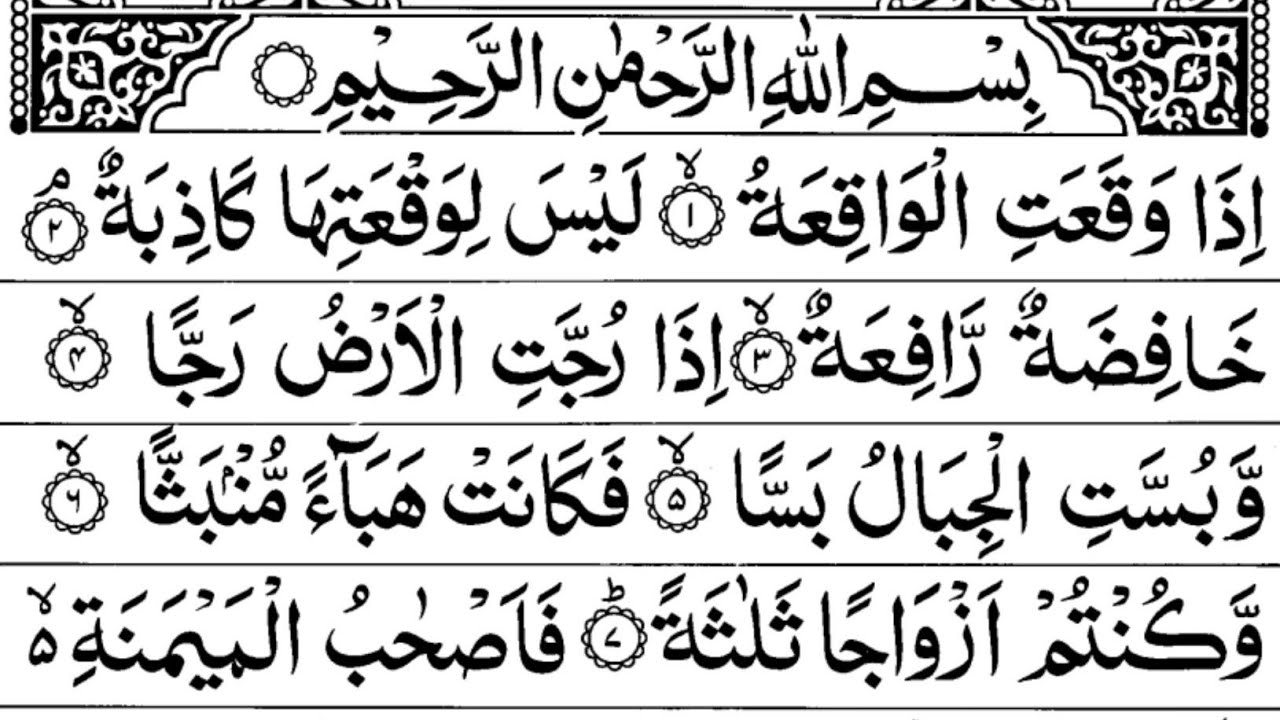 بِسْمِ اللّٰهِ الرَّحْمٰنِ الرَّحِيْمِ
اِذَا وَقَعَتِ الْوَاقِعَةُ ۙ‏﴿۱﴾ لَيْسَ لِوَقْعَتِهَا كَاذِبَةٌ ۘ‏﴿۲﴾
خَافِضَةٌ رَّافِعَةٌ ۙ‏﴿۳﴾ اِذَا رُجَّتِ الْاَرْضُ رَجًّا ۙ‏﴿۴﴾
وَّبُسَّتِ الْجِبَالُ بَسًّا ۙ‏﴿۵﴾ فَكَانَتْ هَبَآءً مُّنْۢبَثًّا ۙ‏﴿۶﴾
وَّكُنْتُمْ اَزْوَاجًا ثَلٰثَةً ؕ‏﴿۷﴾ فَاَصْحٰبُ الْمَيْمَنَةِ ۙ۵